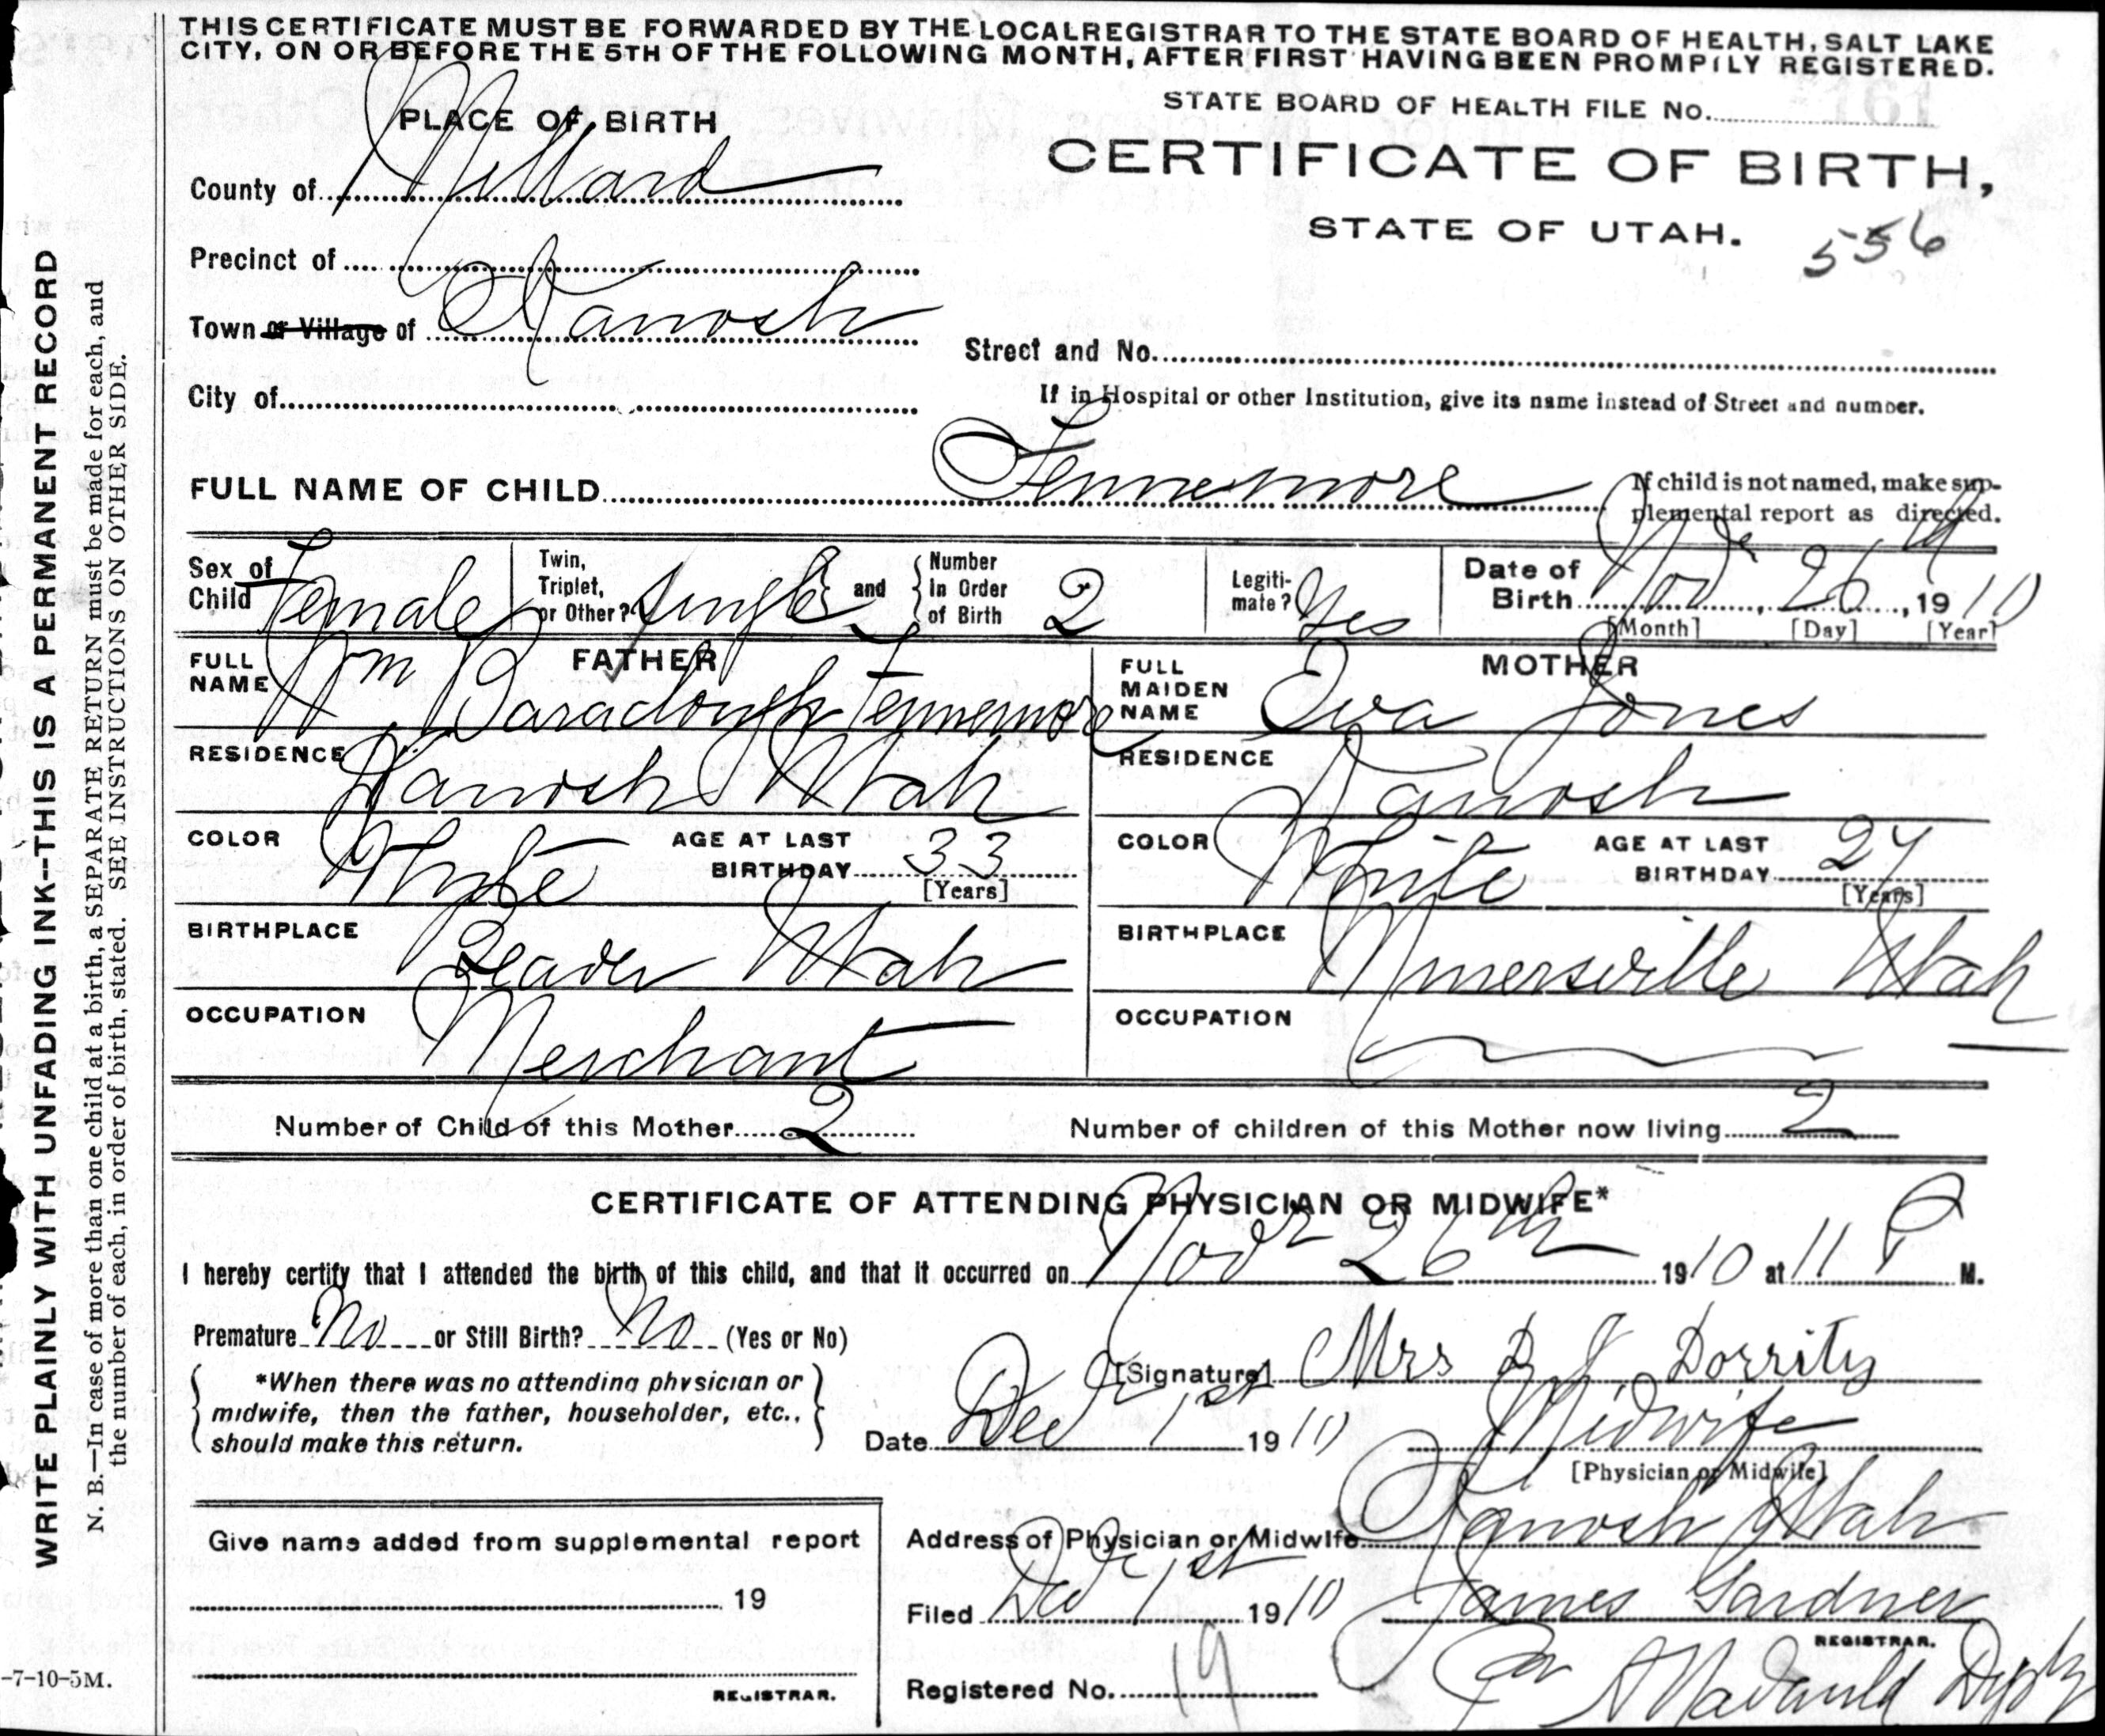 THIS CERTIFICATE MUST BE FORWARDED BY THE LOCAL REGISTRAR TO THE STATE BOARD OF HEALTH, SALT LAKE
CITY, ON OR BEFORE THE 5TH OF THE FOLLOWING MONTH, AFTER FIRST HAVING BEEN PROMPTLY REGISTERED.
STATE BOARD OF HEALTH FILE No.
PLACE OF BIRTH
CERTIFICATE OF BIRTH,
County of Millard
STATE OF UTAH.
556
Precinct of
Town or Village of Kanosh
Street and No.
City of
If in Hospital or other Institution, give its name instead of Street and number.
FULL NAME OF CHILD Fennemore
If child is not named, make sup-
plemental report as directed.
Sex of Child Female
Twin, Triplet, or Other? Single and Number In Order of Birth 2
Legiti-mate? Yes
Date of Birth Nov 26, 1910
[Month] [Day] [Year]
FATHER
FULL NAME Wm Baraclough Fennemore
MOTHER
FULL MAIDEN NAME Eva Jones
RESIDENCE Kanosh Utah
RESIDENCE Kanosh
COLOR White AGE AT LAST BIRTHDAY 33
[Years]
COLOR White AGE AT LAST BIRTHDAY 27
[Years]
BIRTHPLACE Beaver Utah
BIRTHPLACE Minersville Utah
OCCUPATION Merchant
OCCUPATION
Number of Child of this Mother 2
Number of children of this Mother now living 2
CERTIFICATE OF ATTENDING PHYSICIAN OR MIDWIFE*
I hereby certify that I attended the birth of this child, and that it occurred on Novr 26th 1910 at 11 P M.
Premature No or Still Birth? No (Yes or No)
[Signature] Mrs B J Dorrity
*When there was no attending physician or
midwife, then the father, householder, etc.,
should make this return.
Date Decr 1st 1910
Midwife
[Physician or Midwife]
Give name added from supplemental report
Address of Physician or Midwife Kanosh Utah
19
Filed Dec 1st 1910
James Gardner
REGISTRAR.
Registered No. 19
REGISTRAR.
-7-10-5M.
WRITE PLAINLY WITH UNFADING INK--THIS IS A PERMANENT RECORD
N. B.—In case of more than one child at a birth, a SEPARATE RETURN must be made for each, and
the number of each, in order of birth, stated. SEE INSTRUCTIONS ON OTHER SIDE.